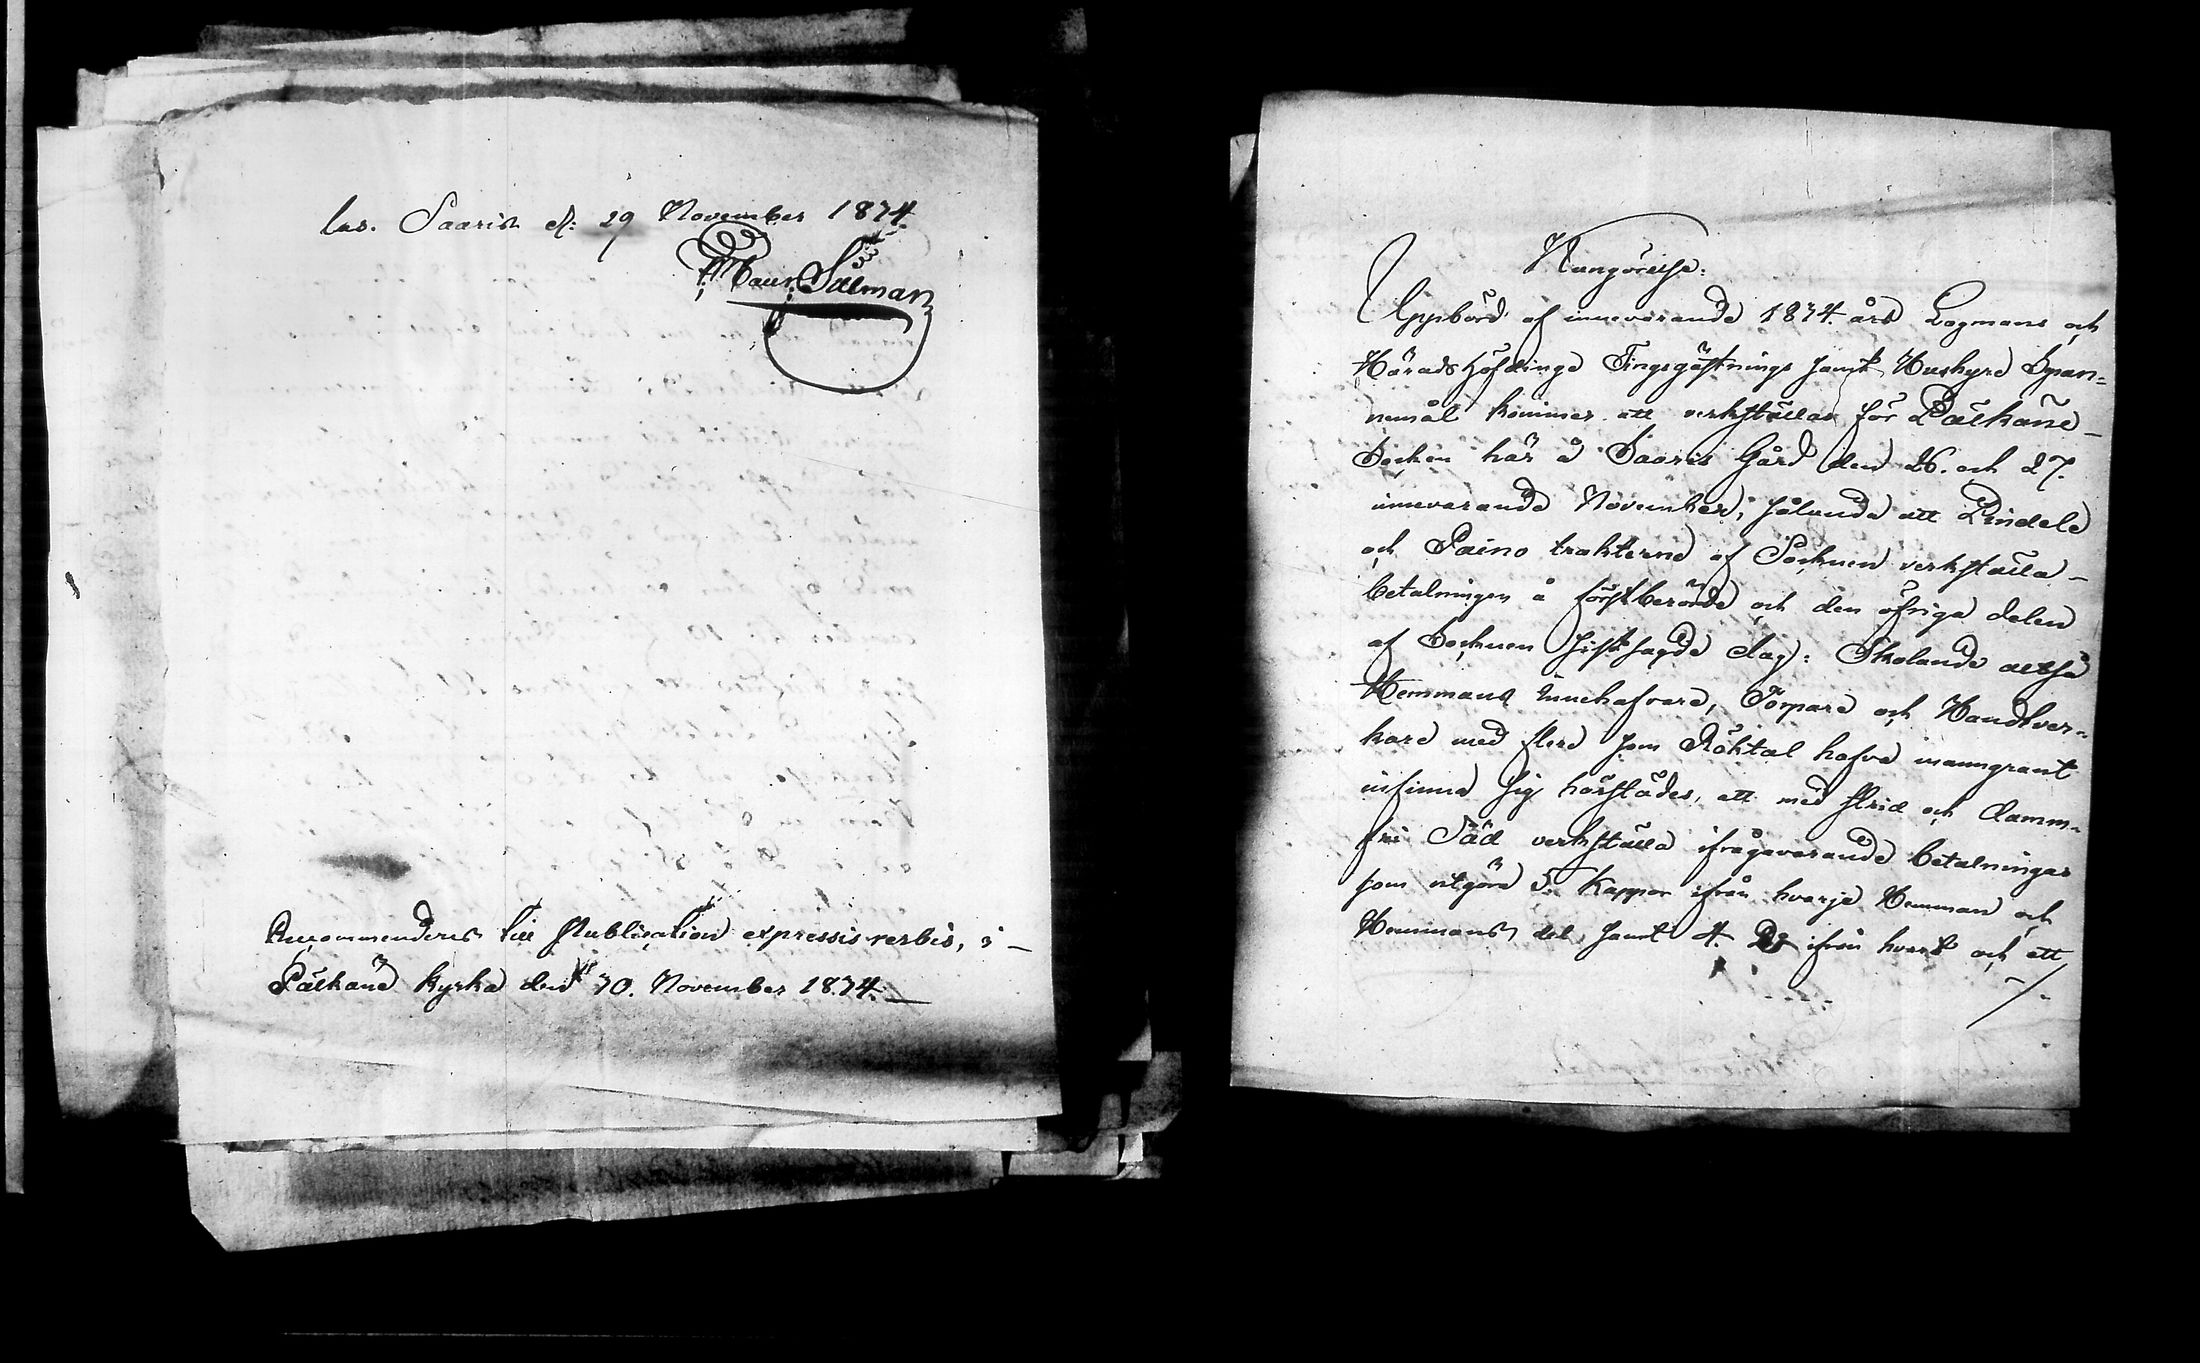 las. Saaris d. 29 November 1874.
Maur. Salman
Recommenderas till Publication expressis verbis, i
Pälkäne kyrka den 30. November 1874.
Kungörelse.
Uppbörd af innevarande 1874. års Lagmans och
Häradshöfdinge Tingsgästnings samt Hushyre Span-
nemål kommer att verkställas för Pälkäne
Socken här å Saaris Gård den 26. och 27.
innevarande November, sålunda att
och Saino trakterne af Socknen verkställa
betalningen å förstberörde och den öfriga delen
af Socknen sistsagde dag: Skolande altså
Hemmans innehafvare, Torpare och Handtver-
kare med flere som Röktal hafva manngrant
infinna sig härstädes, att med strid och damm-
fri Säd verkställa ifrågavarande betalningar
som utgöra 5. Kappar ifrån hvarje Hemman och
Hemmans del samt 4. ifrån hvart och ett